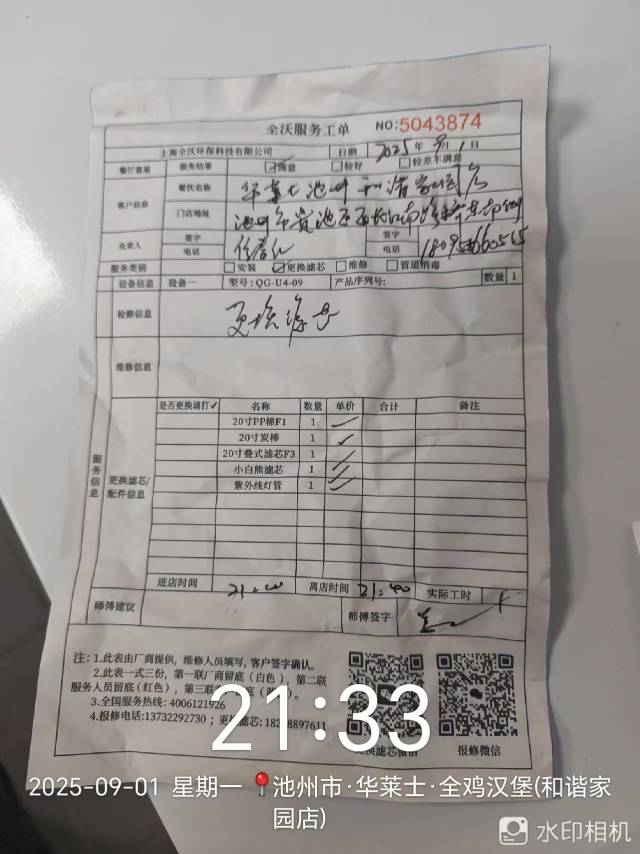 全沃服务工单 NO:5043874
上海全沃环保科技有限公司 日期 2025年9月1日
餐厅意见 服务结果 满意 较好 较差不满意
客户信息 餐饮名称 华莱士池州和谐家园店
门店地址
负责人 签字 电话 签字 电话
服务类别 安装 更换滤芯 维修 管道消毒
设备信息 设备一 型号:QG-U4-09 产品序列号: 数量 1
检修信息 更换滤芯
维修信息
服务信息 更换滤芯/配件信息
是否更换请打✓ 名称 数量 单价 合计 备注
20寸PP棉F1 1
20寸炭棒 1
20寸叠式滤芯F3 1
小白熊滤芯 1
紫外线灯管 1
进店时间 21:20 离店时间 21:40 实际工时
师傅建议 师傅签字
注:1.此表由厂商提供,维修人员填写,客户签字确认。
2.此表一式三份,第一联厂商留底(白色),第二联
服务人员留底(红色),第三联
3.全国服务热线: 4006121926
4.报修电话:13732292730;
更换滤芯微信 报修微信
21:33
2025-09-01 星期一 池州市·华莱士·全鸡汉堡(和谐家
园店)
水印相机